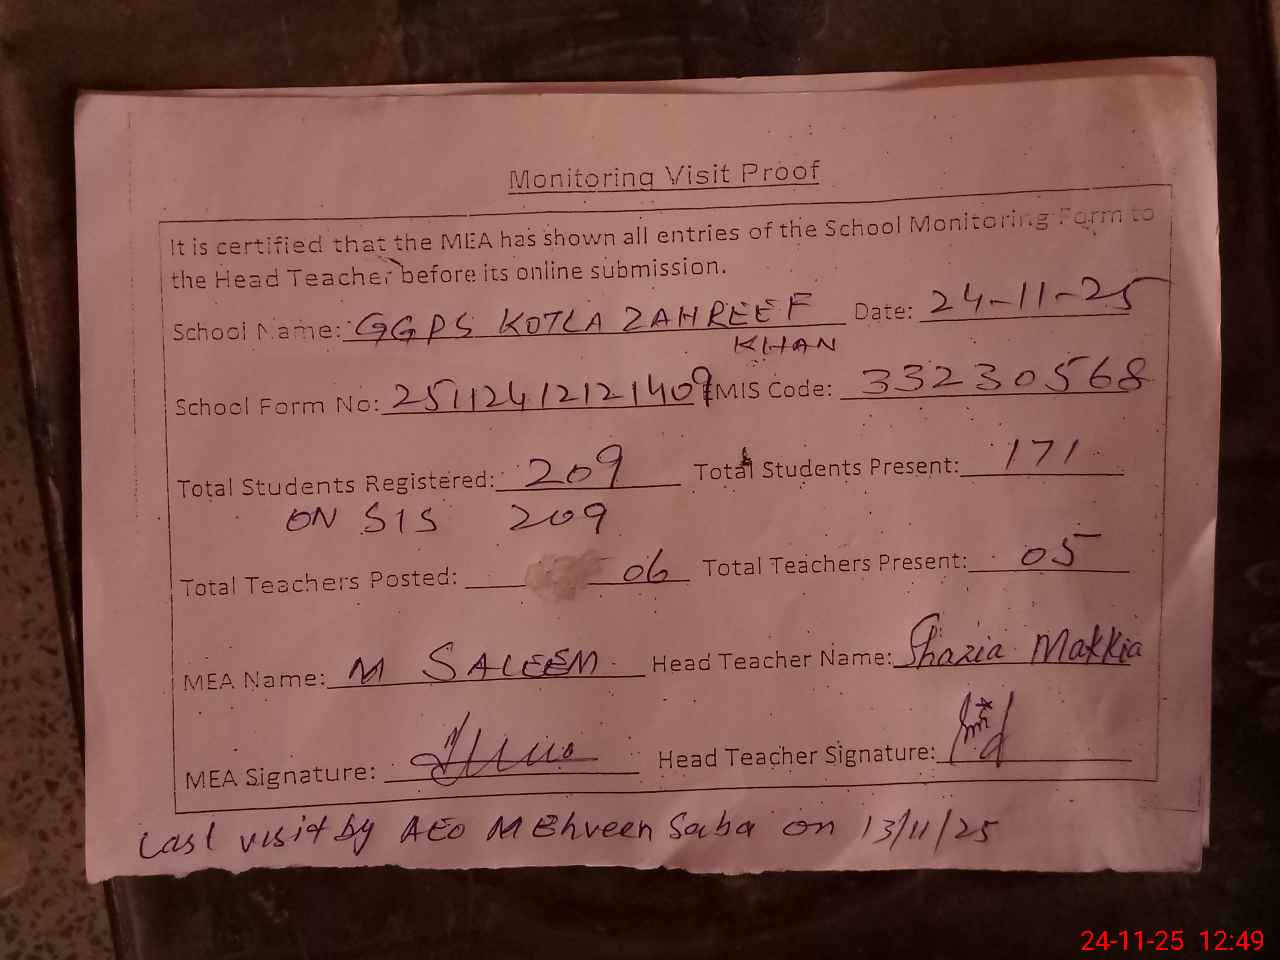 Monitoring Visit Proof
It is certified that the MEA has shown all entries of the School Monitoring Form to
the Head Teacher before its online submission.
School Name: GGPS KOTLA ZAHREEF Date: 24-11-25
KHAN
School Form No: 25112412121409 EMIS Code: 33230568
Total Students Registered: 209 Total Students Present: 171
ON SIS 209
Total Teachers Posted: 06 Total Teachers Present: 05
MEA Name: M SALEEM Head Teacher Name: Shazia Makkia
MEA Signature: Head Teacher Signature:
Last visit by AEO MEhveen Saba on 13/11/25
24-11-25 12:49